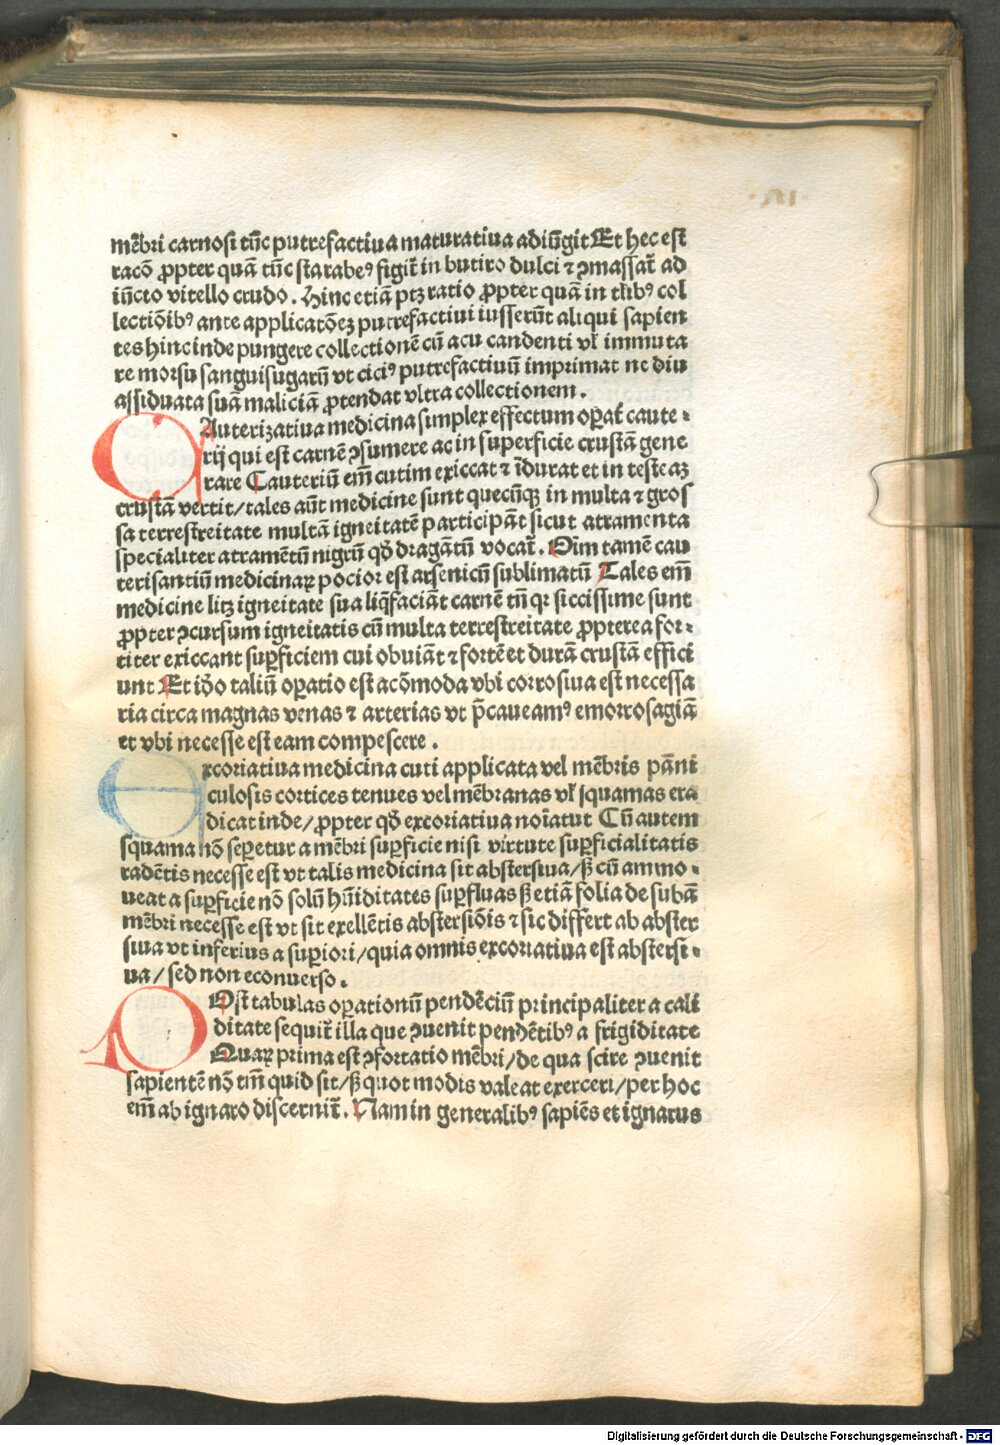 mēbri carnosi tūc putrefactiua maturatiua adiūgit Et hec est
racō ꝓpter quā tūc starabeꝰ figit̄ in butiro dulci ⁊ ꝯmassat̄ ad
iūcto vitello crudo. Hinc etiā ptꝫ ratio ꝓpter quā in tlibꝰ col
lectiōibꝰ ante applicatōeꝫ putrefactiui iusserūt aliqui sapien
tes hinc inde pungere collectionē cū acu candenti vl̄ immuta
re morsu sanguisugarū vt ciciꝰ putrefactiuū imprimat ne diu
assiduata suā maliciā ꝓtendat vltra collectionem.
CAuterizatiua medicina simplex effectum oꝑat̄ caute⸗
rij qui est carnē ꝯsumere ac in superficie crustā gene
rare Cauteriū em̄ cutim exiccat ⁊ īdurat et in testeaꝫ
crustā vertit/tales aūt medicine sunt quecūqꝫ in multa ⁊ gros
sa terrestreitate multā igneitatē participāt sicut atramenta
specialiter atramētū nigrū qd̄ dragātū vocat̄. Oīm tamē cau
terisantiū medicinaꝝ pocior est arsenicū sublimatū Tales em̄
medicine licꝫ igneitate sua liq̄faciāt carnē tn̄ qꝛ siccissime sunt
ꝓpter ꝯcursum igneitatis cū multa terrestreitate ꝓpterea for⸗
titer exiccant suꝑficiem cui obuiāt ⁊ fortē et durā crustā effici
unt Et iḋo taliū oꝑatio est acōmoda vbi corrosiua est necessa
ria circa magnas venas ⁊ arterias vt p̄caueamꝰ emorrosagiā
et vbi necesse est eam compescere.
Excoriatiua medicina cuti applicata vel mēbris pāni
culosis cortices tenues vel mēbranas vl̄ squamas era
dicat inde/ꝓpter qd̄ excoriatiua noīatur Cū autem
squama nō seꝑetur a mēbri suꝑficie nisi virtute suꝑficialitatis
radētis necesse est vt talis medicina sit abstersiua/sꝫ cū ammo⸗
ueat a suꝑficie nō solū hūiditates suꝑfluas sꝫ etiā folia de subā
mēbri necesse est vt sit exellētis abstersiōis ⁊ sic differt ab abster
siua vt inferius a suꝑiori/quia omnis excoriatiua est abstersi⸗
ua/sed non econuerso.
POst tabulas oꝑationū pendēciū principaliter a cali
ditate sequit̄ illa que ꝯuenit pendētibꝰ a frigiditate
Quaꝝ prima est ꝯfortatio mēbri/de qua scire ꝯuenit
sapientē nō tm̄ quid sit/sꝫ quot modis valeat exerceri/per hoc
em̄ ab ignaro discernit̄. Nam in generalibꝰ sapiēs et ignarus
Digitalisierung gefördert durch die Deutsche Forschungsgemeinschaft - DFG